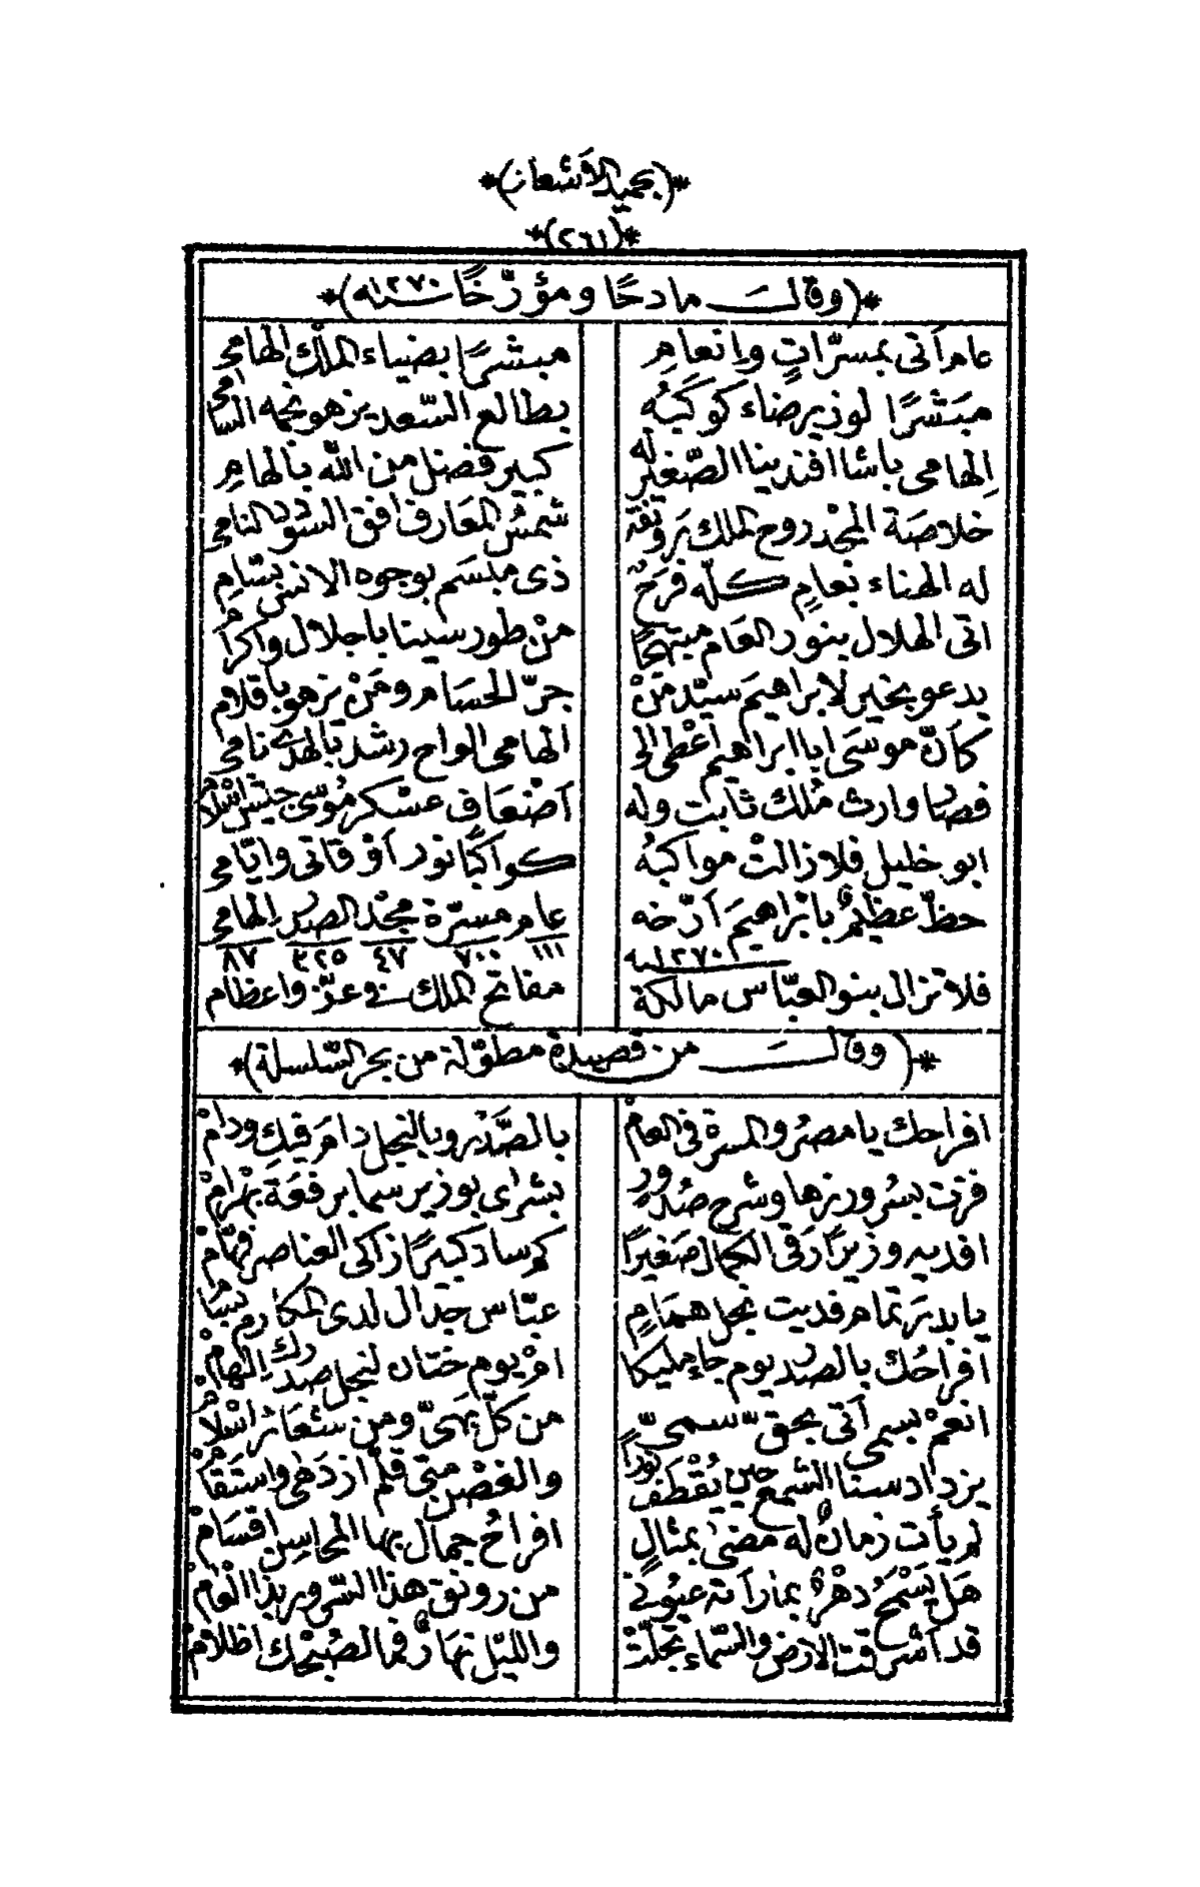 *(بحميد الأشعار)*
*(٢٦١)*
*(وقال مادحًا ومؤرّخًا سنه ١٢٧٠)*
عام أتى بمسرّاتٍ وإنعام مبشرًا بضياء الملك الهامى
مبشرًا لوزير ضاء كوكبُه بطالع السّعد يزهو نجمه السامى
إلهامى باشا افندينا الصّغير له كبير فضل من الله بالهامِ
خلاصة المجد روح الملك رونقه شمسُ المعارف افق السودد النامى
له الهناء بعامٍ كلّه فرحٌ ذى مبسم بوجوه الانس بسّامِ
اتى الهلال بنور العام مبتهجًا من طور سينا باجلال واكرامِ
يدعو بخير لابراهيم سيّد مَنْ جرّ الحسام ومَنْ يزهو باقلام
كأنّ موسَى ابا ابراهيم اعْطى الى الهامى الواح رشد بالهدى نامى
فصار وارث مُلك ثابت وله اضْعاف عسْكر مُوسى جيش اسْلام
ابو خليل فلا زالتْ مواكبُه كواكبًا نور أوْقاتى وايّامى
حظّ عظيمٌ بابْراهيمَ أرّخه عام مسرّة مجْد الصدر إلهامى
سنه ١٢٧٠ ١١١ ٧٠٠ ٤٧ ٣٢٥ ٨٧
فلا تزال بنو العبّاس مالكة مفاتح الملك فى عزّ واعظام
*(وقال من قصيدة مطوّلة من بحر السّلسلة)*
افراحك يا مصرُ والمسرة فى العامْ بالصَّدْر وبالنجل دامَ فيك ودامْ
فزت بسُرور زها وشرح صُدورٍ بشراى بوزير سما برفعَة بهْرامْ
افديه وزيرًا رَقى الكمال صَغيرًا كم ساد كبيرًا زاكى العناصر فهّامْ
يا بدرَ تمام فديت نجل همَامٍ عبّاس جدال لدى المكارم بسّامْ
افراحُك بالصدر يوم جاء مليكا امْ يوم ختان لنجل صدرك الهامْ
انعمْ بسمى أتى بحقّ سمىّ من كلّ بهىّ ومن شعائر اسْلامْ
يزداد سنا الشمع حين يُقْطَف نورًا والغصْن متى قلّم ازدَهى واستَقامْ
لم يأت زمانٌ له مضىٰ بمثالٍ افراحُ جمال بها المحاسِن اقسَامْ
هَل يَسْمحُ دهْرٌ بما رأته عيُونى من رونق هذا السّرور بذا الْعامْ
قد أشرقت الارض والسّماء تجلّتْ والليْل نهَارٌ فما لصُبْحك اظلامْ